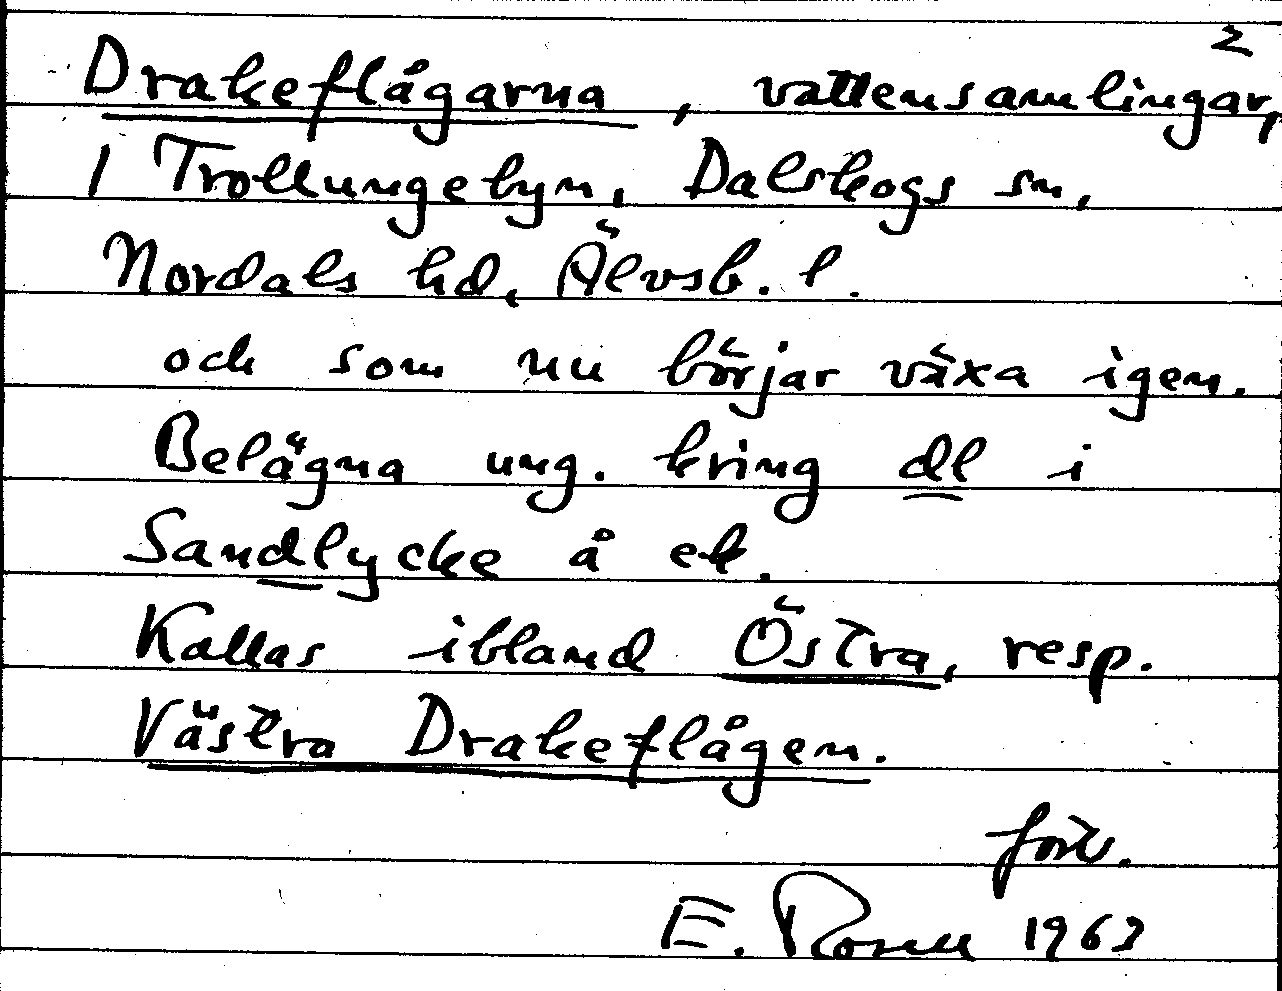 2
Drakeflågarna, vattensamlingar,
i Trollungebyn, Dalskogs sn,
Nordals hd, Älvsb. l.
och som nu börjar växa igen.
Belägna ung. kring dl i
Sandlycke å ek.
Kallas ibland Östra, resp.
Västra Drakeflågen.
forts.
E. Rosell 1963